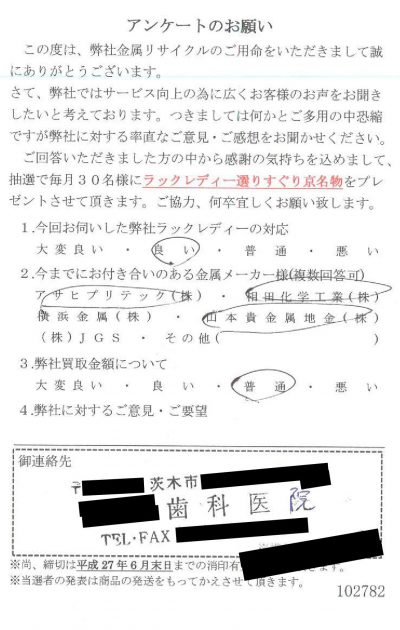 アンケートのお願い
この度は、弊社金属リサイクルのご用命をいただきまして誠
にありがとうございます。
さて、弊社ではサービス向上の為に広くお客様のお声をお聞き
したいと考えております。つきましては何かとご多用の中恐縮
ですが弊社に対する率直なご意見・ご感想をお聞かせください。
ご回答いただきました方の中から感謝の気持ちを込めまして、
抽選で毎月30名様にラックレディー選りすぐり京名物をプレ
ゼントさせて頂きます。ご協力、何卒宜しくお願い致します。
1.今回お伺いした弊社ラックレディーの対応
大変良い・良い・普通・悪い
2.今までにお付き合いのある金属メーカー様(複数回答可)
アサヒプリテック(株)・相田化学工業(株)
横浜金属(株)・山本貴金属地金(株)
(株)JGS・その他( )
3.弊社買取金額について
大変良い・良い・普通・悪い
4.弊社に対するご意見・ご要望
御連絡先
〒 茨木市
歯科医院
TEL・FAX
※尚、締切は平成27年6月末日までの消印有
※当選者の発表は商品の発送をもってかえさせて頂きます。
102782